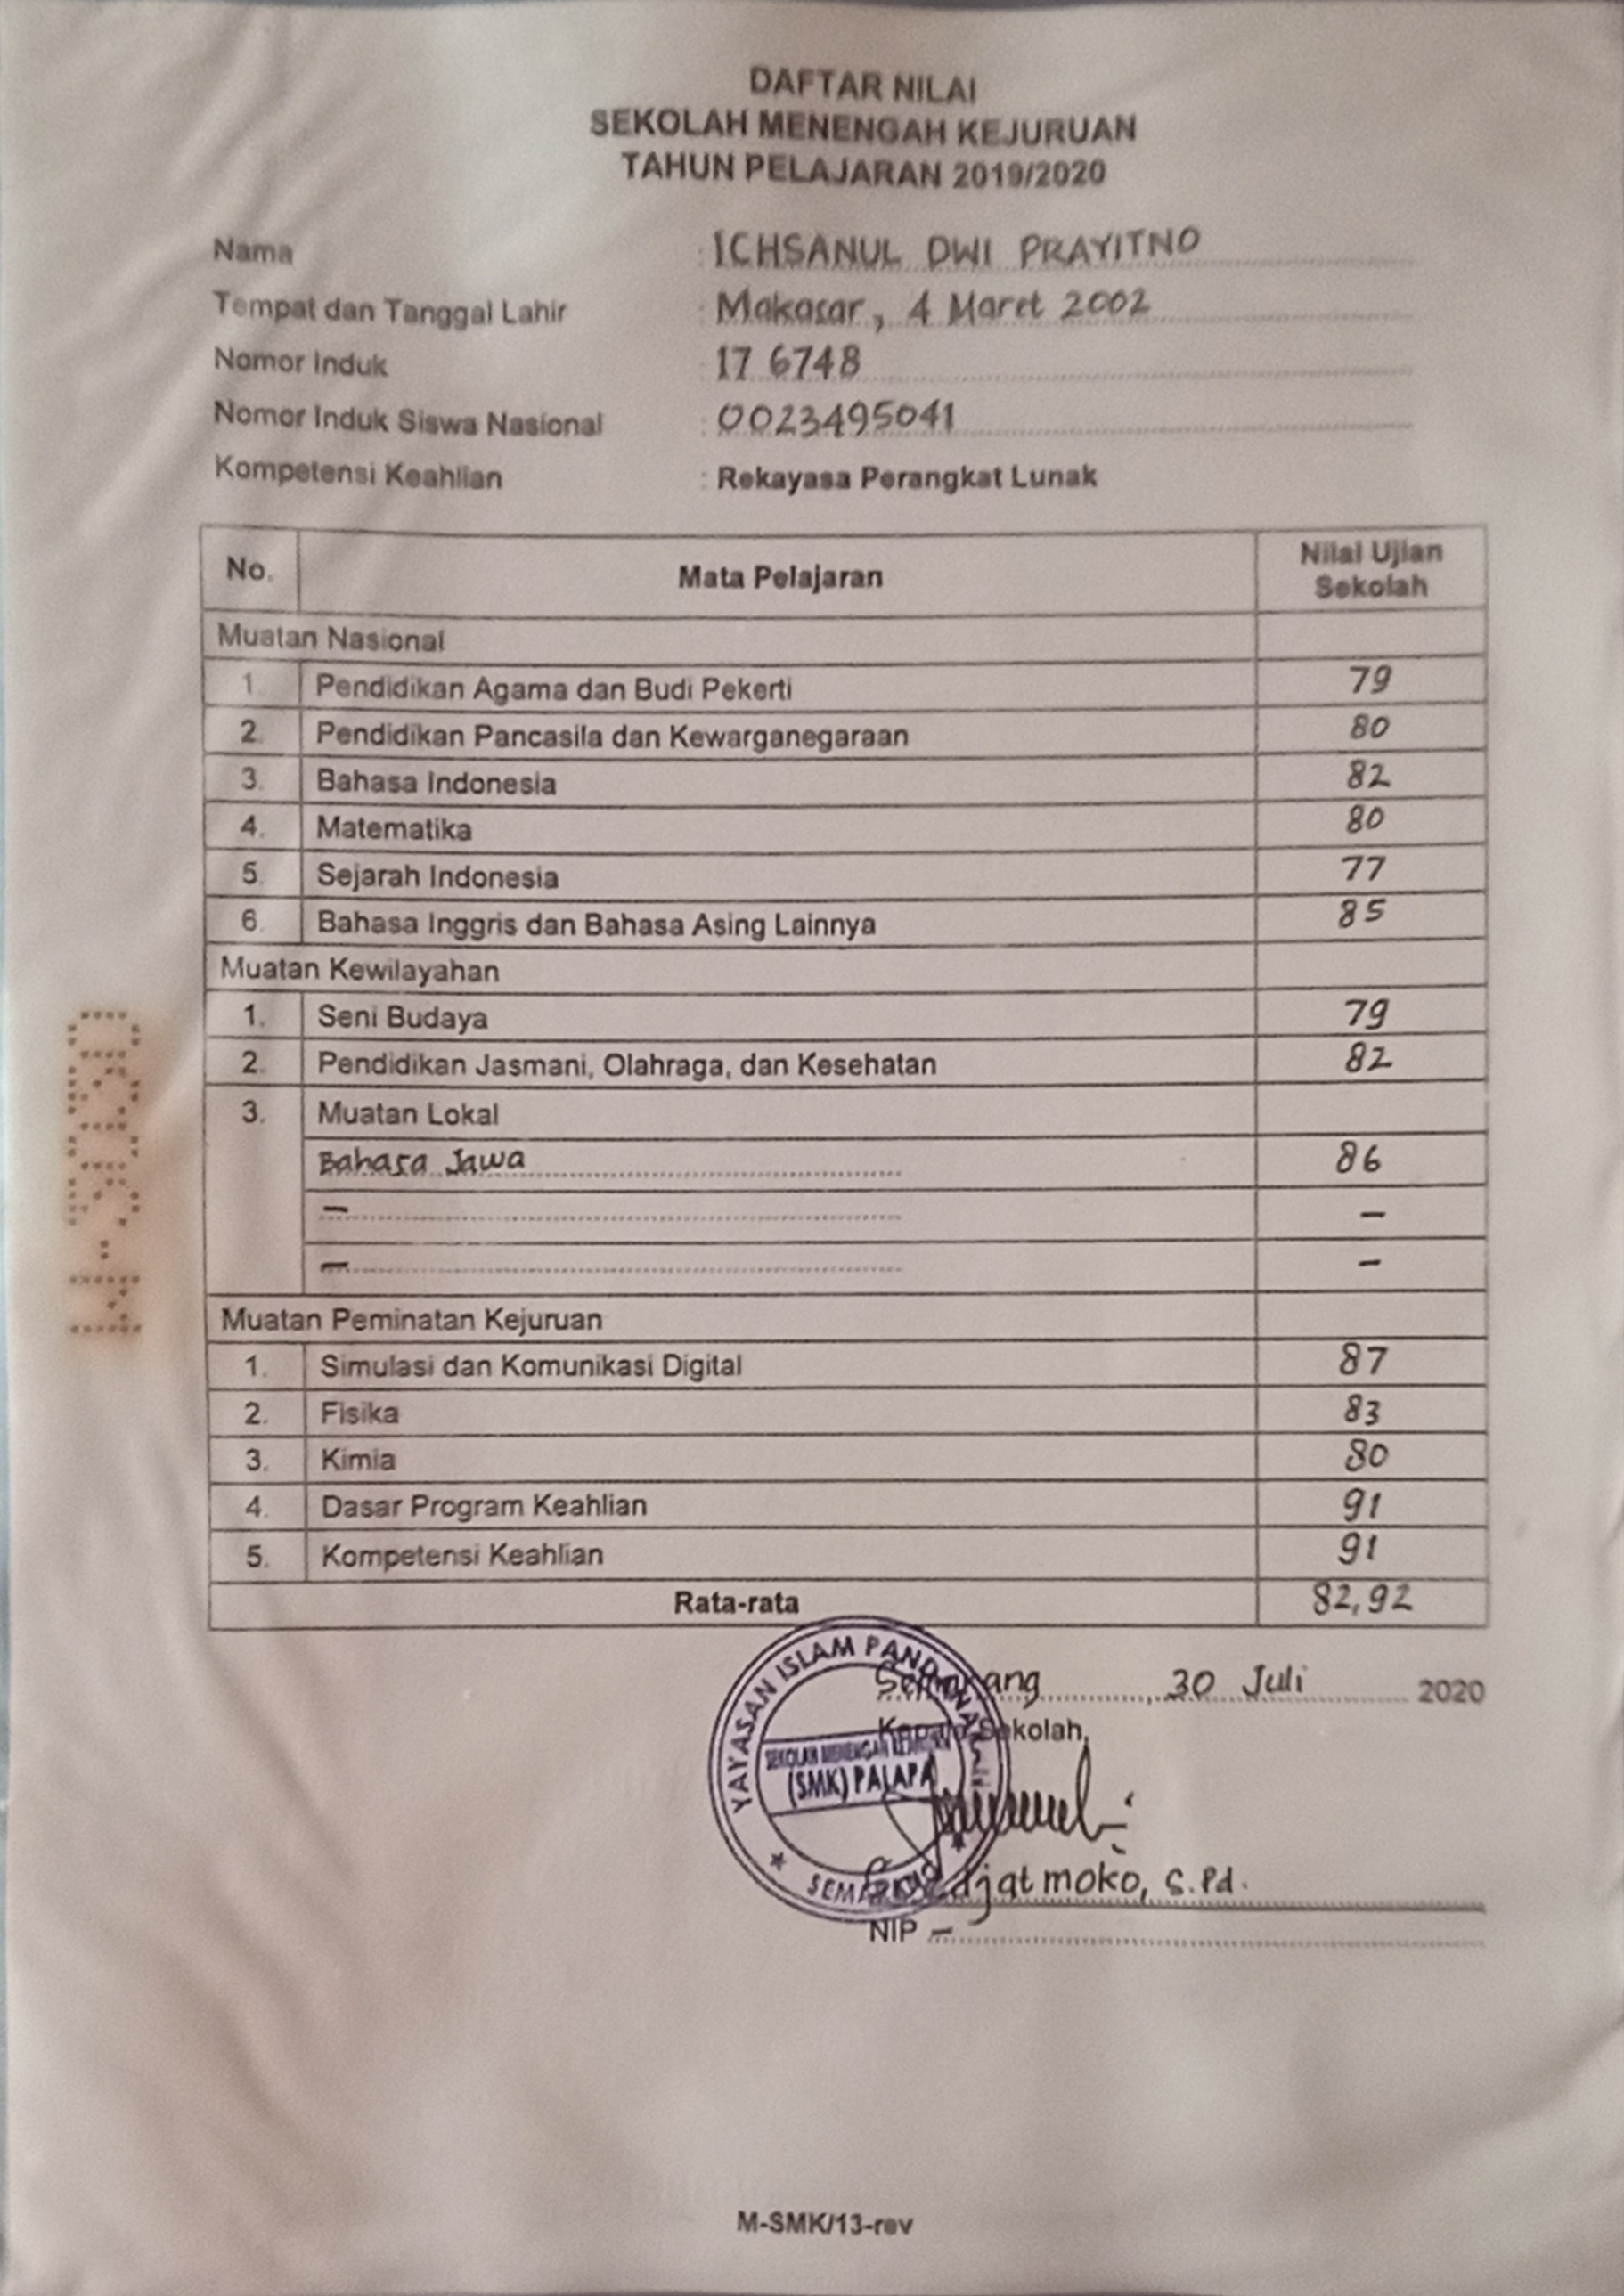 DAFTAR NILAI
SEKOLAH MENENGAH KEJURUAN
TAHUN PELAJARAN 2019/2020
Nama : ICHSANUL DWI PRAYITNO
Tempat dan Tanggal Lahir : Makasar, 4 Maret 2002
Nomor Induk : 17 6748
Nomor Induk Siswa Nasional : 0023495041
Kompetensi Keahlian : Rekayasa Perangkat Lunak
No. Mata Pelajaran Nilai Ujian Sekolah
Muatan Nasional
1. Pendidikan Agama dan Budi Pekerti 79
2. Pendidikan Pancasila dan Kewarganegaraan 80
3. Bahasa Indonesia 82
4. Matematika 80
5. Sejarah Indonesia 77
6. Bahasa Inggris dan Bahasa Asing Lainnya 85
Muatan Kewilayahan
1. Seni Budaya 79
2. Pendidikan Jasmani, Olahraga, dan Kesehatan 82
3. Muatan Lokal
Bahasa Jawa 86
– –
– –
Muatan Peminatan Kejuruan
1. Simulasi dan Komunikasi Digital 87
2. Fisika 83
3. Kimia 80
4. Dasar Program Keahlian 91
5. Kompetensi Keahlian 91
Rata-rata 82,92
Semarang, 30 Juli 2020
Kepala Sekolah,
YAYASAN ISLAM
SEKOLAH MENENGAH KEJURUAN
(SMK) PALAPA
SEMARANG
S.Pd.
NIP –
M-SMK/13-rev